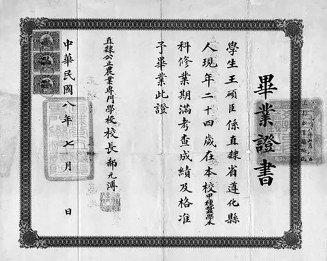 畢業證書
學生王碩臣係直隸省遵化縣
人現年二十四歲在本校甲種農學本
科修業期滿考查成績及格准
予畢業此證
直隸公立農業專門學校校長郝元溥
中華民國八年七月日